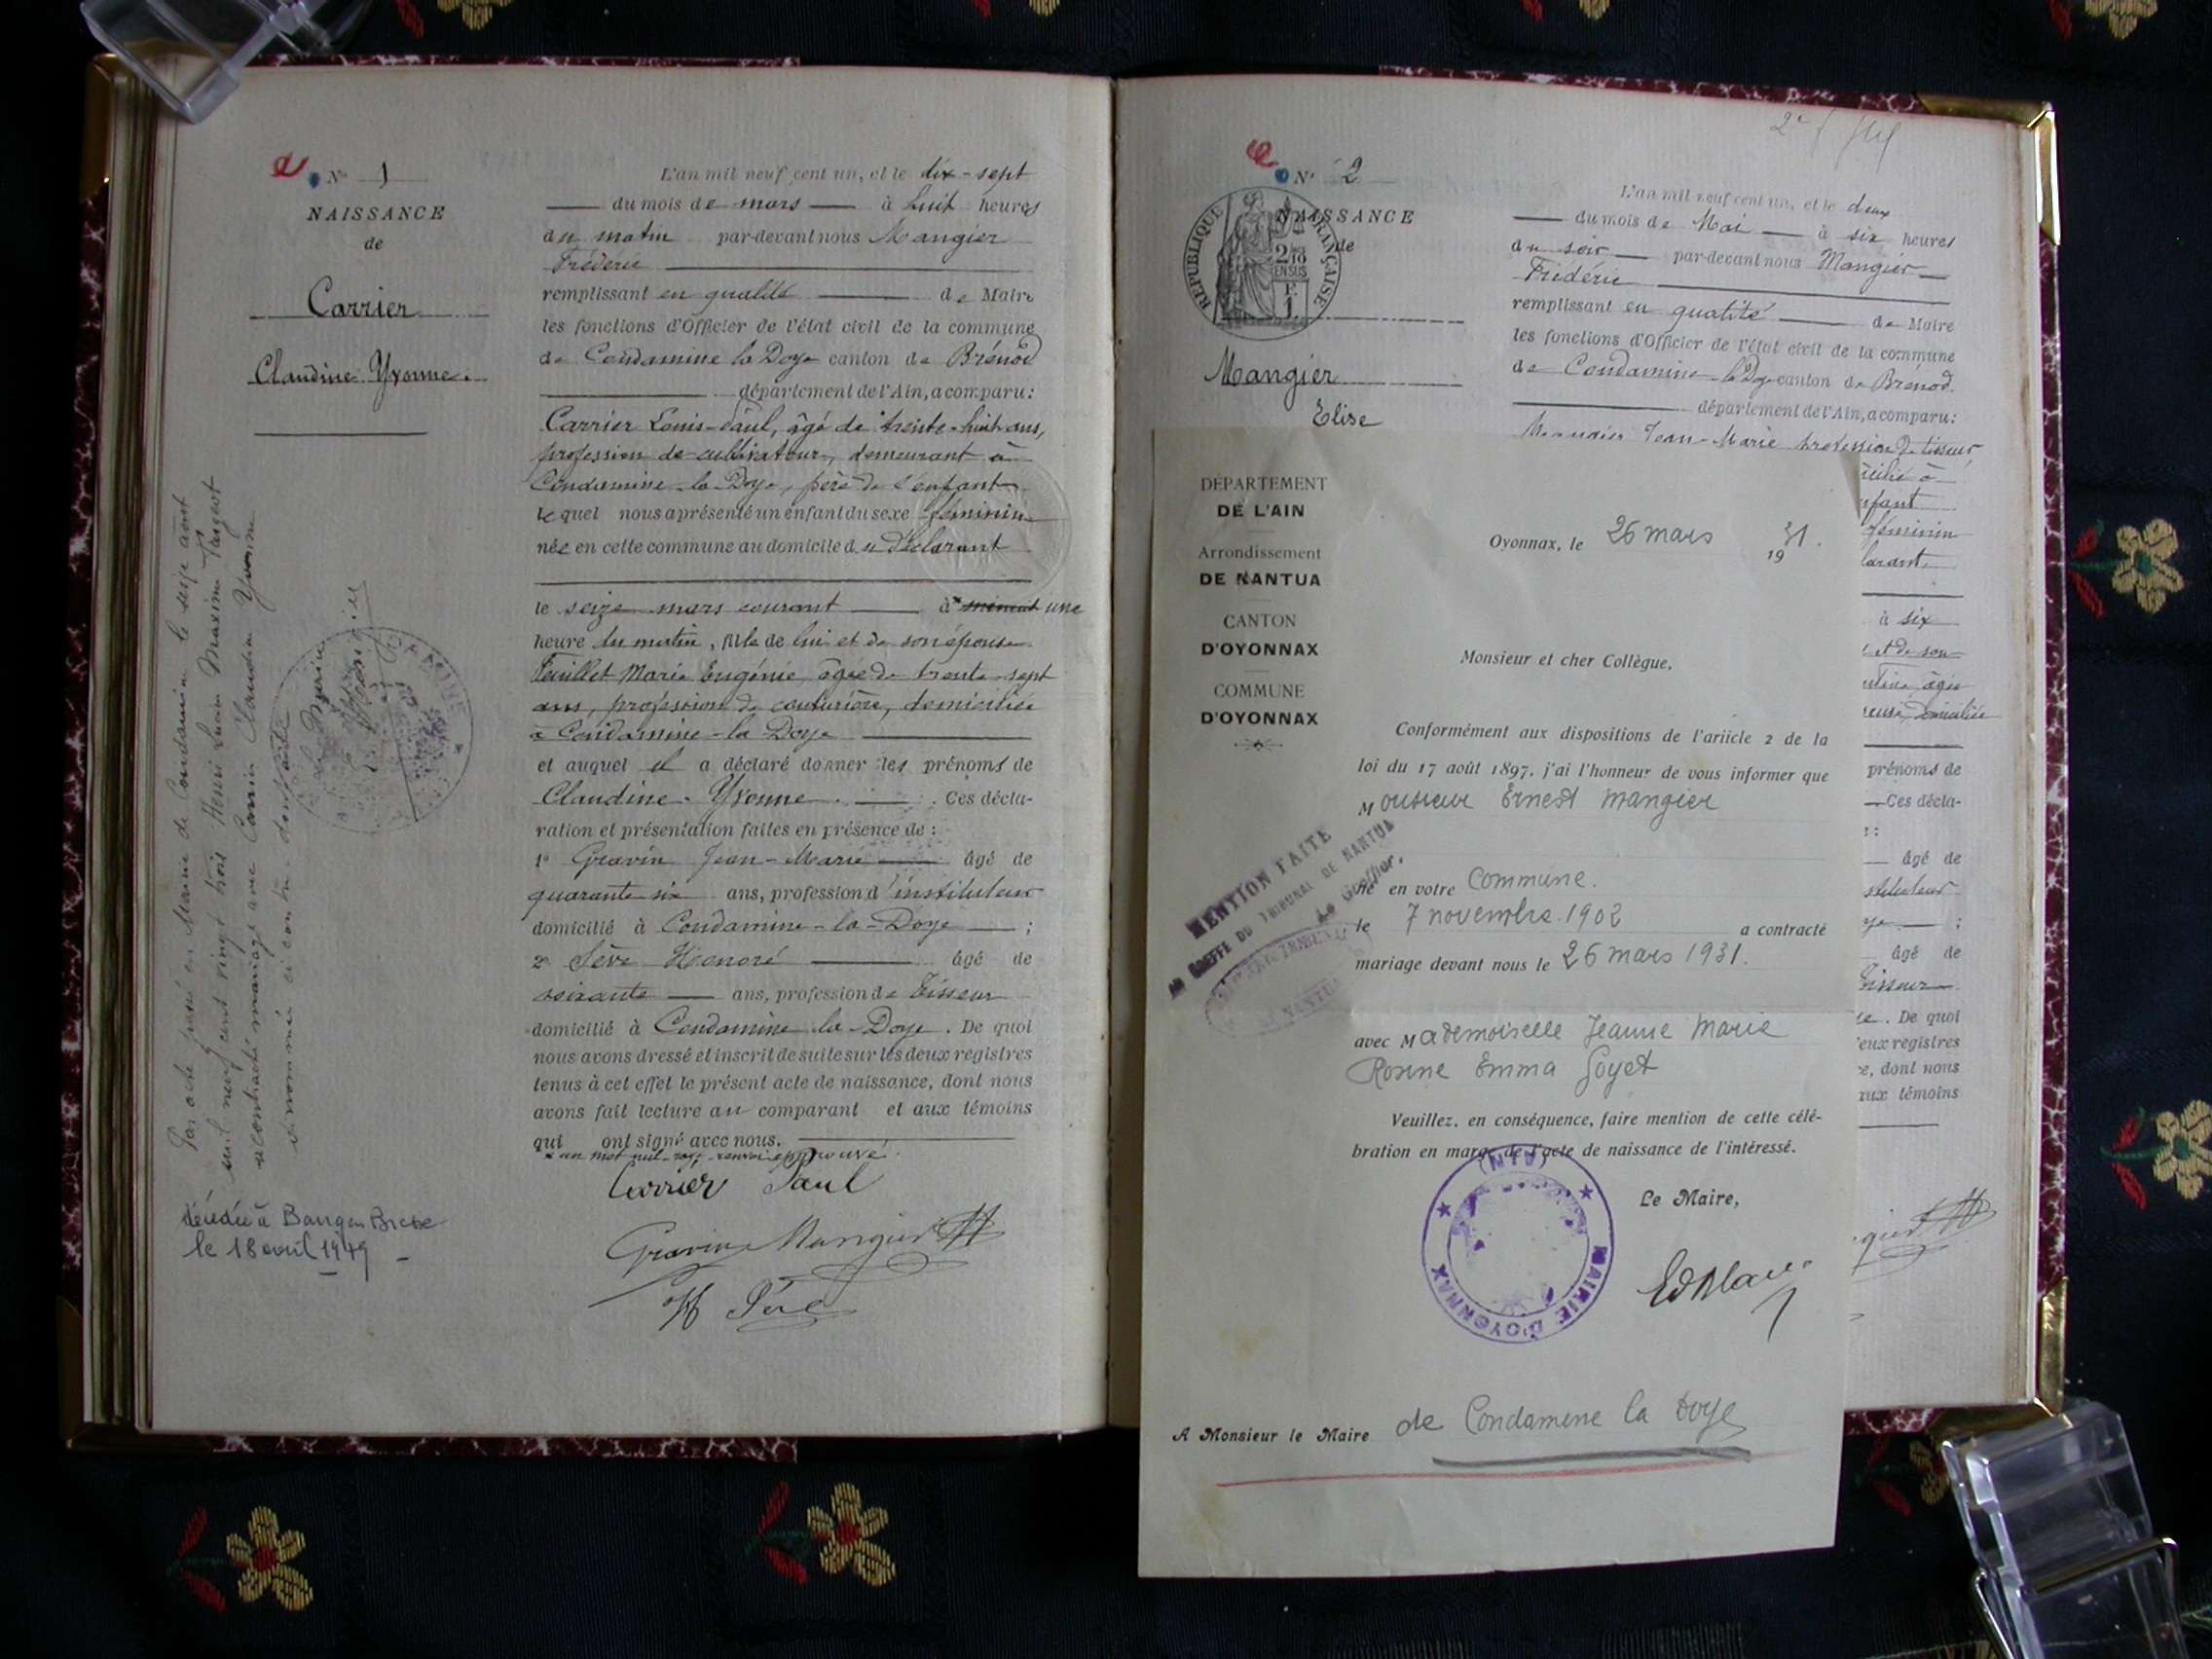 Nº 1
NAISSANCE
de
Carrier
Claudine Yvonne.
L'an mil neuf cent un, et le dix-sept
du mois de mars à huit heures
du matin par-devant nous Mangier
Fréderic
remplissant en qualité de Maire
les fonctions d'Officier de l'état civil de la commune
de Condamine la Doye canton de Brénod
département de l'Ain, a comparu:
Carrier Louis-Paul, âgé de trente-huit ans,
profession de cultivateur, demeurant à
Condamine-la-Doye, père de l'enfant
lequel nous a présenté un enfant du sexe féminin
née en cette commune au domicile du déclarant
le seize mars courant à une
heure du matin, fille de lui et de son épouse
Feuillet Marie Eugénie, âgée de trente-sept
ans, profession de couturière, domiciliée
à Condamine-la Doye
et auquel il a déclaré donner les prénoms de
Claudine-Yvonne. Ces décla-
ration et présentation faites en présence de :
1º Gravin Jean-Marie âgé de
quarante six ans, profession d'instituteur
domicilié à Condamine-la-Doye ;
2º Sève Honoré âgé de
soixante ans, profession de Tisseur
domicilié à Condamine-la-Doye. De quoi
nous avons dressé et inscrit de suite sur les deux registres
tenus à cet effet le présent acte de naissance, dont nous
avons fait lecture au comparant et aux témoins
qui ont signé avec nous.
Carrier Paul
Gravin Mangier
H Sève
Par acte passé en Mairie de Condamine le sept août
mil neuf cent vingt trois Henri Lucien Maxime
a contracté mariage avec Carrier Claudine Yvonne
dénommée ci contre
décédée à
le 18 avril 1949
Nº 2
NAISSANCE
de
RÉPUBLIQUE FRANÇAISE
Mangier
Elise
L'an mil neuf cent un, et le deux
du mois de Mai à six heures
du soir par-devant nous Mangier
Fréderic
remplissant en qualité de Maire
les fonctions d'Officier de l'état civil de la commune
de Condamine la Doye canton de Brénod.
département de l'Ain, a comparu:
Jean-Marie profession de tisseur
féminin
à six
et de son
âgée
domiciliée
prénoms de
Ces décla-
âgé de
âgé de
Tisseur
De quoi
registres
dont nous
aux témoins
DÉPARTEMENT
DE L'AIN
Arrondissement
DE NANTUA
CANTON
D'OYONNAX
COMMUNE
D'OYONNAX
Oyonnax, le 26 mars 1931.
Monsieur et cher Collègue,
Conformément aux dispositions de l'article 2 de la
loi du 17 août 1897, j'ai l'honneur de vous informer que
Monsieur Ernest Mangier
né en votre Commune.
le 7 novembre 1902 a contracté
mariage devant nous le 26 mars 1931.
avec Mademoiselle Jeanne Marie
Rosine Emma Goyet
Veuillez, en conséquence, faire mention de cette célé-
bration en marge de l'acte de naissance de l'intéressé.
Le Maire,
MENTION FAITE
AU GREFFE DU TRIBUNAL DE NANTUA
Le Greffier,
MAIRIE D'OYONNAX
(AIN)
A Monsieur le Maire de Condamine la Doye